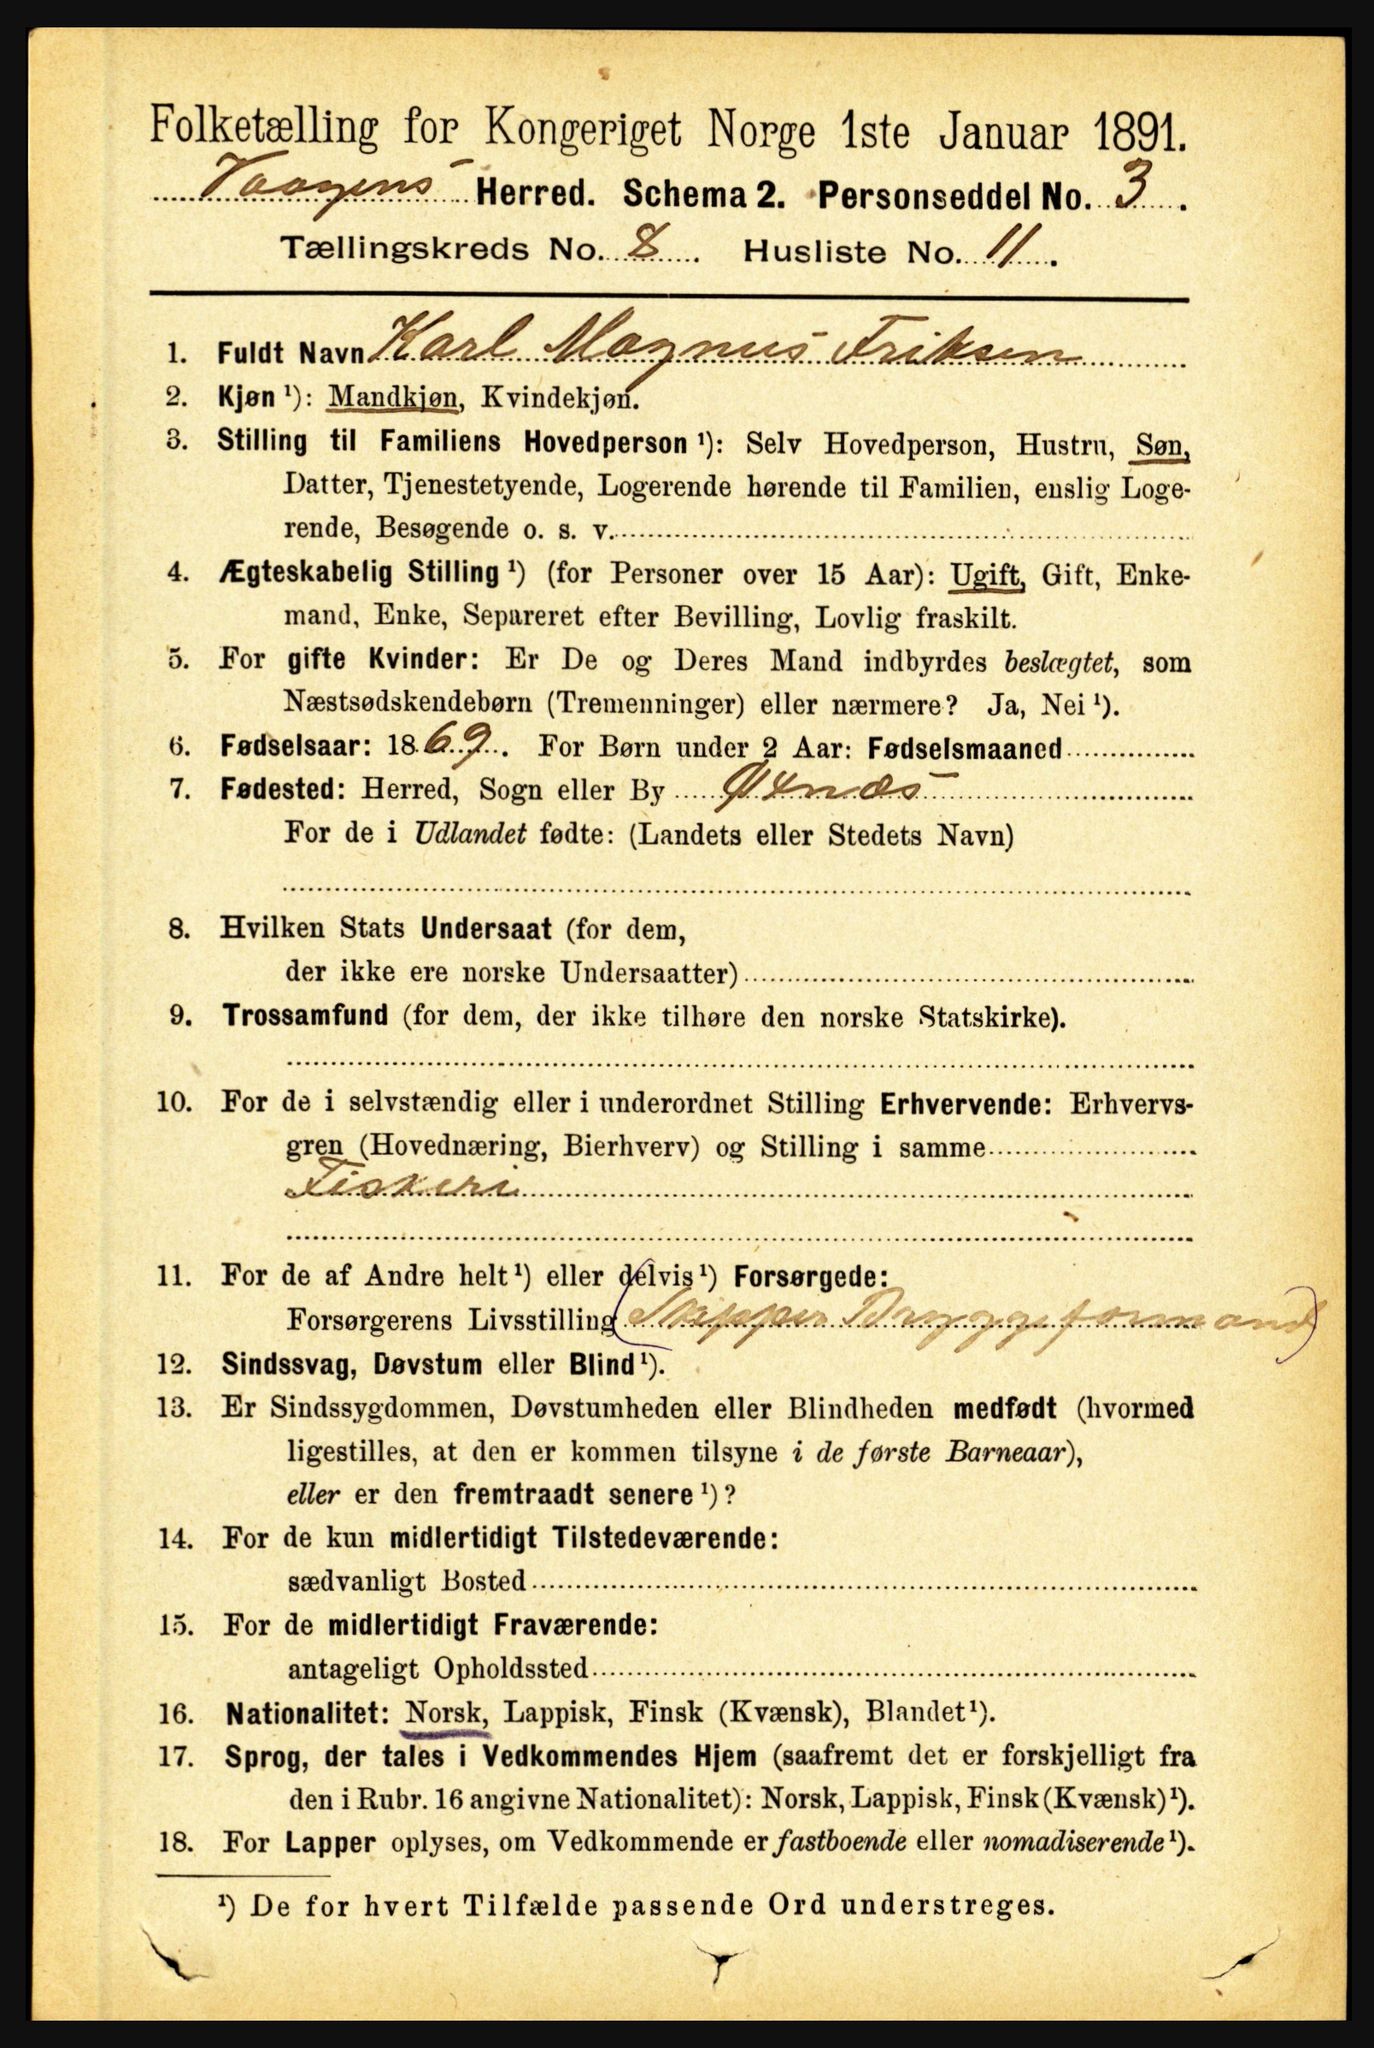 Folketælling for Kongeriget Norge 1ste Januar 1891.
Vaagens Herred. Schema 2. Personseddel No. 3.
Tællingskreds No. 8. Husliste No. 11.
1. Fuldt Navn Karl Magnus Eriksen
2. Kjøn ¹): Mandkjøn, Kvindekjøn.
3. Stilling til Familiens Hovedperson ¹): Selv Hovedperson, Hustru, Søn,
Datter, Tjenestetyende, Logerende hørende til Familien, enslig Loge-
rende, Besøgende o. s. v.
4. Ægteskabelig Stilling ¹) (for Personer over 15 Aar): Ugift, Gift, Enke-
mand, Enke, Separeret efter Bevilling, Lovlig fraskilt.
5. For gifte Kvinder: Er De og Deres Mand indbyrdes beslægtet, som
Næstsødskendebørn (Tremenninger) eller nærmere? Ja, Nei ¹).
6. Fødselsaar: 1869. For Børn under 2 Aar: Fødselsmaaned
7. Fødested: Herred, Sogn eller By Øxnæs
For de i Udlandet fødte: (Landets eller Stedets Navn)
8. Hvilken Stats Undersaat (for dem,
der ikke ere norske Undersaatter)
9. Trossamfund (for dem, der ikke tilhøre den norske Statskirke).
10. For de i selvstændig eller i underordnet Stilling Erhvervende: Erhvervs-
gren (Hovednæring, Bierhverv) og Stilling i samme
Fiskeri
11. For de af Andre helt ¹) eller delvis ¹) Forsørgede:
Forsørgerens Livsstilling (Skipper Bryggeformand)
12. Sindssvag, Døvstum eller Blind ¹).
13. Er Sindssygdommen, Døvstumheden eller Blindheden medfødt (hvormed
ligestilles, at den er kommen tilsyne i de første Barneaar),
eller er den fremtraadt senere ¹)?
14. For de kun midlertidigt Tilstedeværende:
sædvanligt Bosted
15. For de midlertidigt Fraværende:
antageligt Opholdssted
16. Nationalitet: Norsk, Lappisk, Finsk (Kvænsk), Blandet ¹).
17. Sprog, der tales i Vedkommendes Hjem (saafremt det er forskjelligt fra
den i Rubr. 16 angivne Nationalitet): Norsk, Lappisk, Finsk (Kvænsk) ¹).
18. For Lapper oplyses, om Vedkommende er fastboende eller nomadiserende ¹).
¹) De for hvert Tilfælde passende Ord understreges.